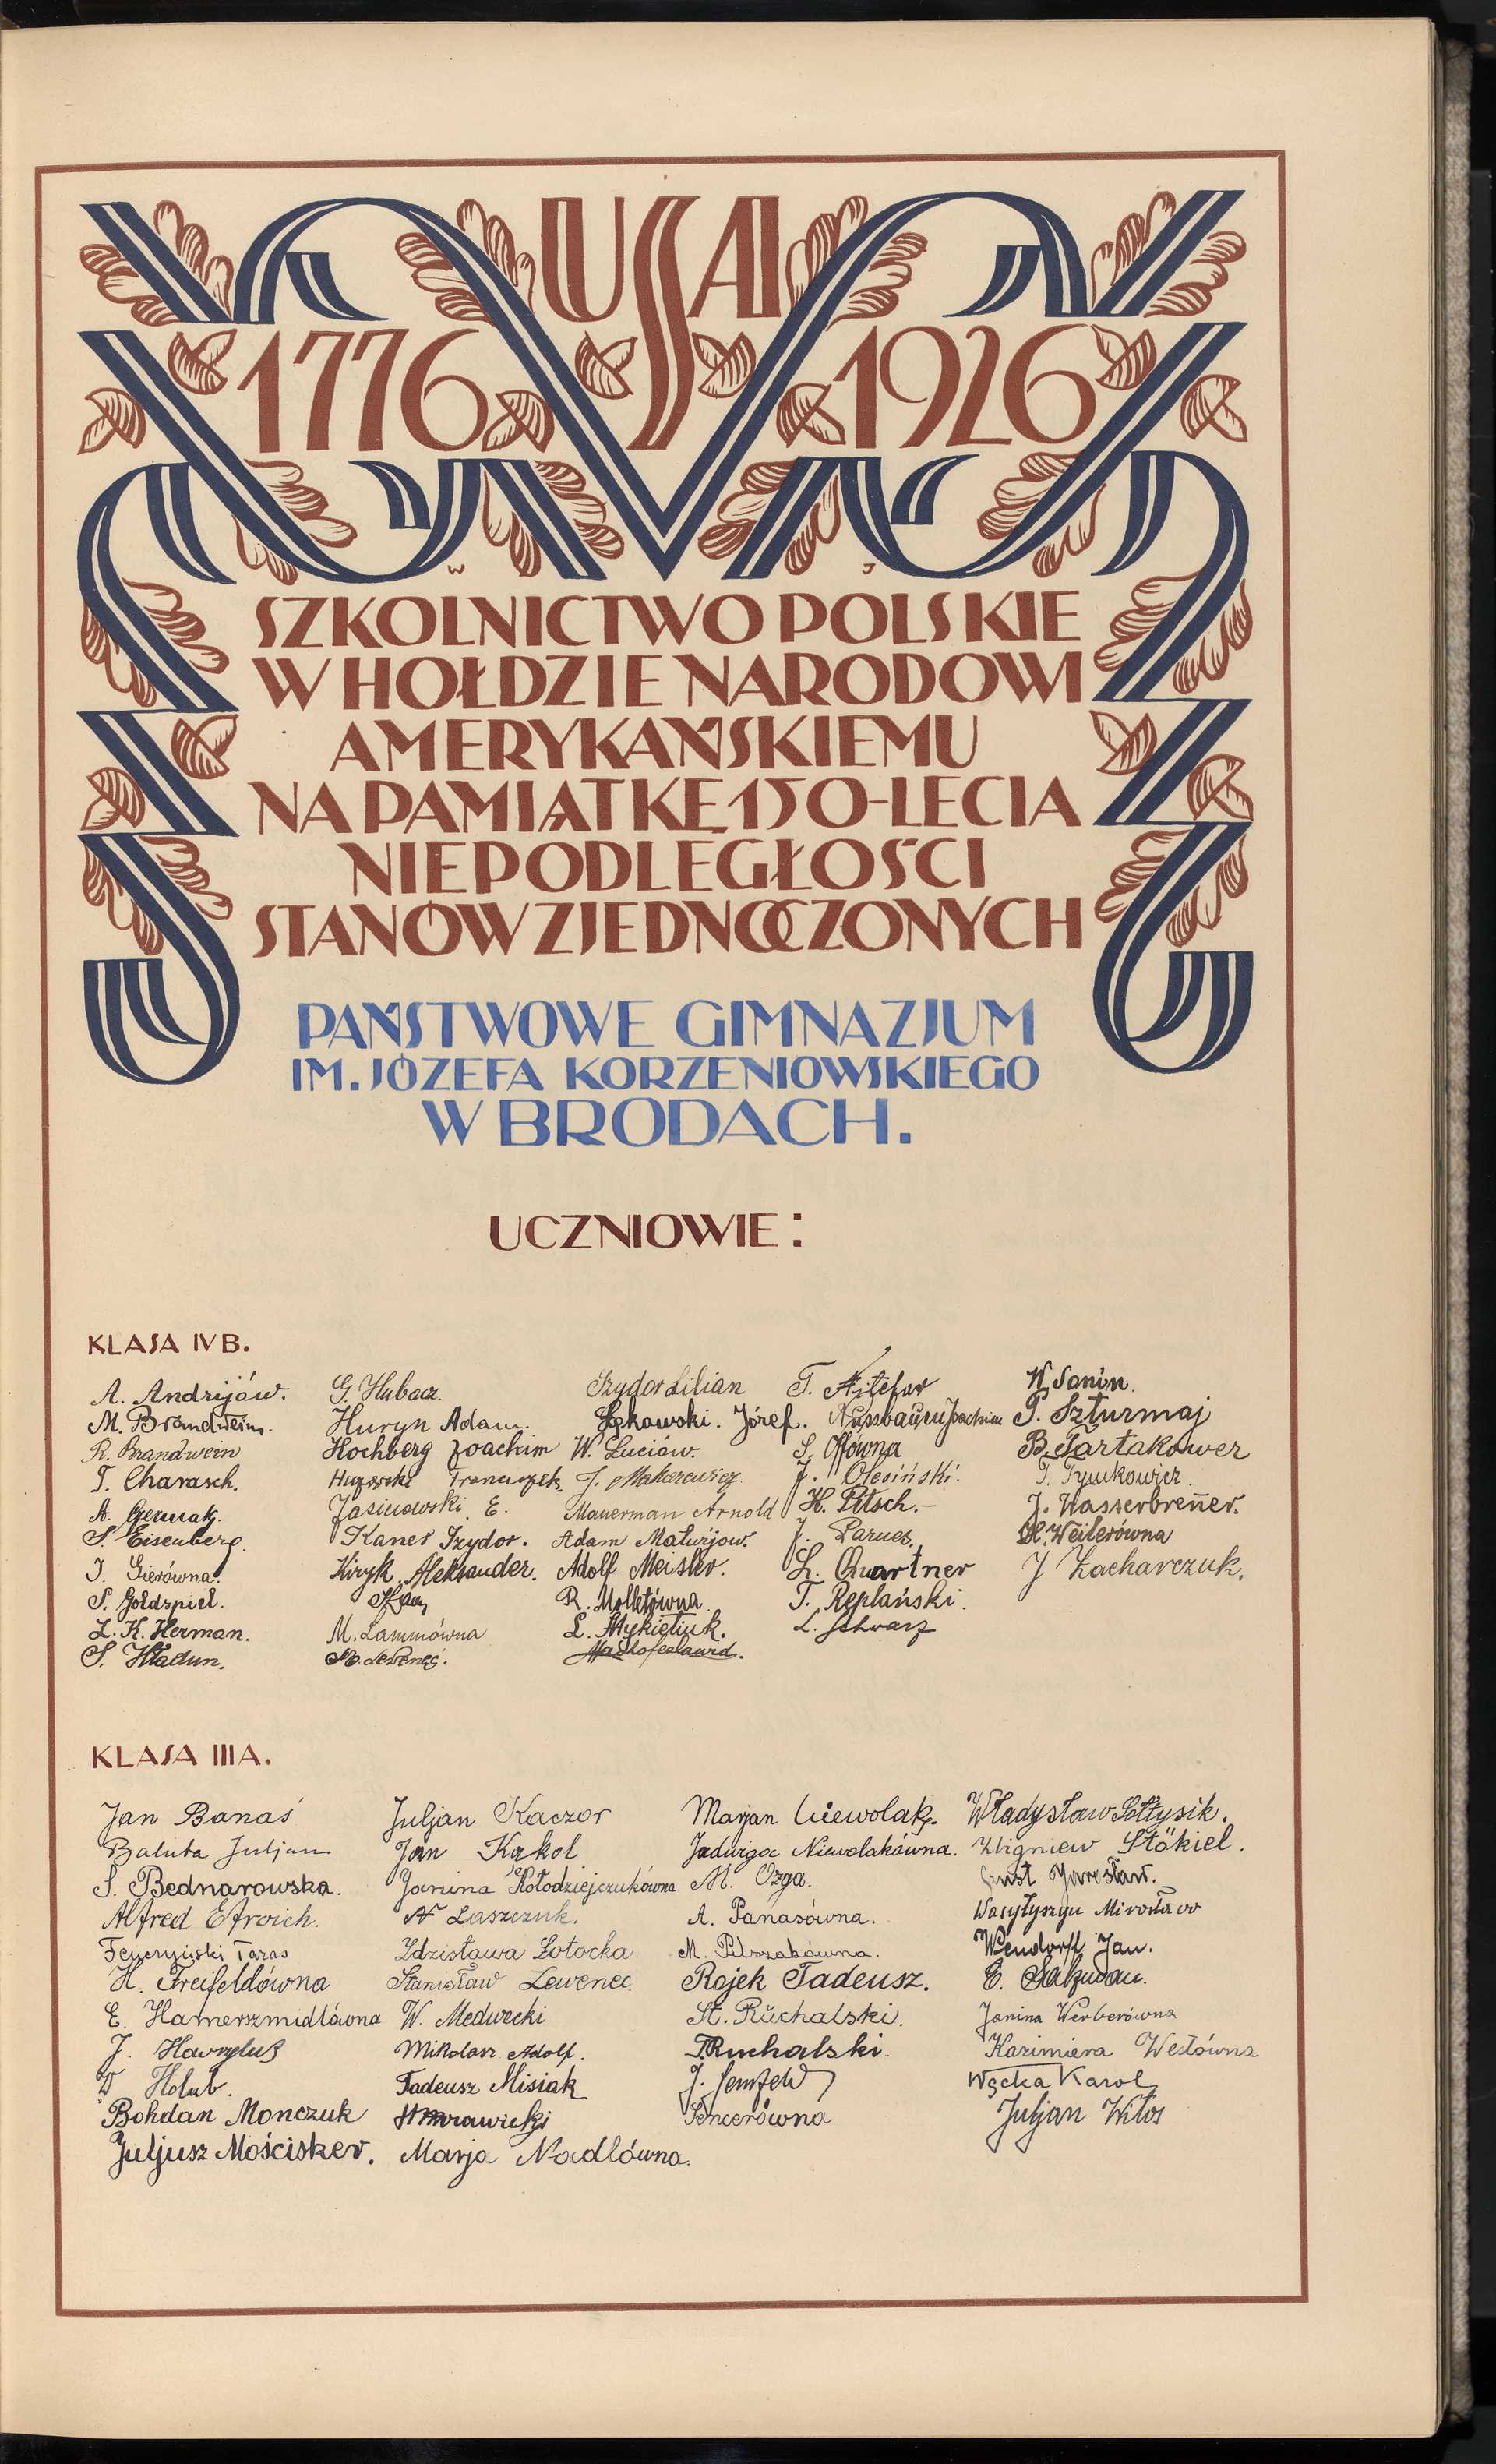 USA
1776 1926
W J
SZKOLNICTWO POLSKIE
W HOŁDZIE NARODOWI
AMERYKAŃSKIEMU
NA PAMIĄTKĘ 150-LECIA
NIEPODLEGŁOŚCI
STANÓW ZJEDNOCZONYCH
PAŃSTWOWE GIMNAZJUM
IM. JÓZEFA KORZENIOWSKIEGO
W BRODACH.
UCZNIOWIE:
KLASA IVB.
A. Andrijów.
M. Brandwein.
R. Brandwein
T. Charasch.
A.
S. Eisenberg.
I. Gierówna.
S. Goldspiel.
L. K. Herman.
S. Hładun.
G. Hubacz
Huryn Adam.
Hochberg Joachim
Franciszek
Jasinowski E.
Kaner Izydor.
Kiryk Aleksander.
M. Lammówna
Izydor Lilian
Łękowski. Józef.
W. Luciów.
J. Makarewicz
Mauerman Arnold
Adam Matwijow.
Adolf Meisler.
R. Molletówna
L. Mykietiuk.
T.
Nussbaum Joachim
S. Offówna
J. Olesiński.
H. Pitsch.-
J.
L. Quartner
T. Replański.
L. Schwarz
W. Sanin.
P. Szturmaj
B. Tartakower
T. Tymkowicz.
J. Wasserbrenner.
H. Weilerówna
J Zacharczuk.
KLASA IIIA.
Jan Banaś
Baluta Juljan
S. Bednarowska.
Alfred Efroich.
Taras
H. Freifeldówna
E. Hamerszmidtówna
J.
W Holub.
Bohdan Monczuk
Juljusz Mościsker.
Juljan Kaczor
Jan Kąkol
Janina Kołodziejczukówna
Laszczuk.
Zdzisława Łotocka
Stanisław Lewenec.
W. Medwecki
Mikolasz Adolf.
Tadeusz Misiak
Marja Nadlówna.
Marjan Niewolak.
Jadwiga Niewolakówna.
M. Ozga.
A. Panasówna.
M.
Rojek Tadeusz.
St. Ruchalski.
T. Ruchalski.
J.
Spencerówna
Władysław Sołtysik.
Zbigniew Stökiel.
Ernst Jarosław.
Wasyłyszyn Mirosław
Wendorff Jan.
E.
Janina Werberówna
Kazimiera Wesłówna
Węcka Karol
Juljan Witos